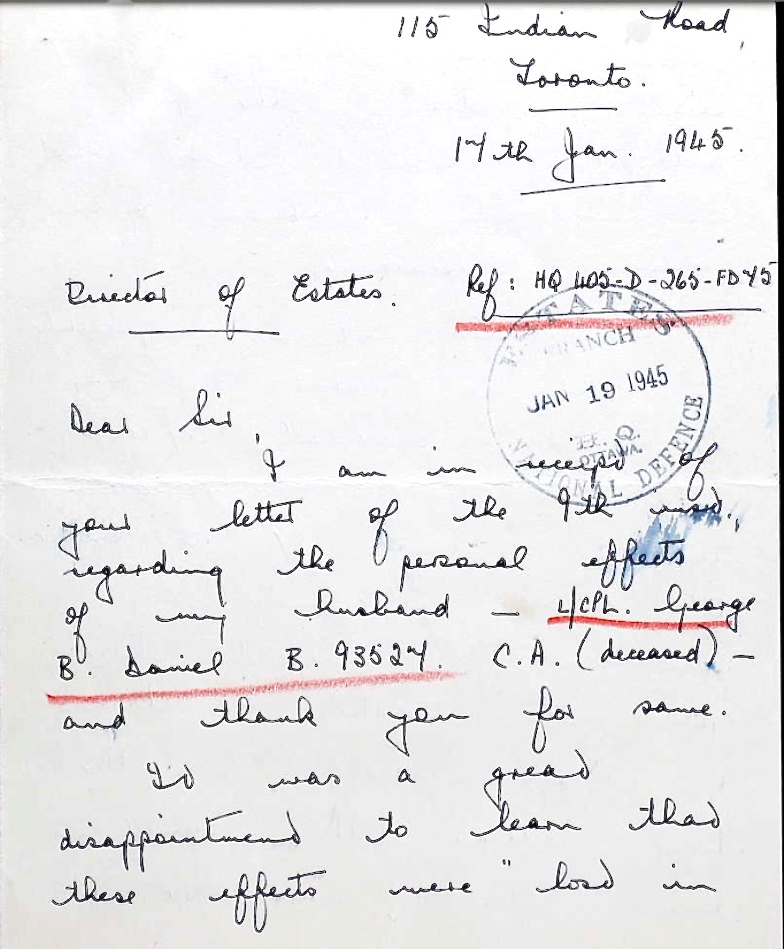 115 Indian Road,
Toronto.
17th Jan. 1945.
Director of Estates.
Ref: HQ 405-D-265-FDY5
ESTATES
BRANCH
JAN 19 1945
H.Q.
OTTAWA.
NATIONAL DEFENCE
Dear Sir,
I am in receipt of
your letter of the 9th inst.,
regarding the personal effects
of my husband – L/CPL. George
B. Daniel B. 93527. C.A. (deceased) –
and thank you for same.
It was a great
disappointment to learn that
these effects were "lost in